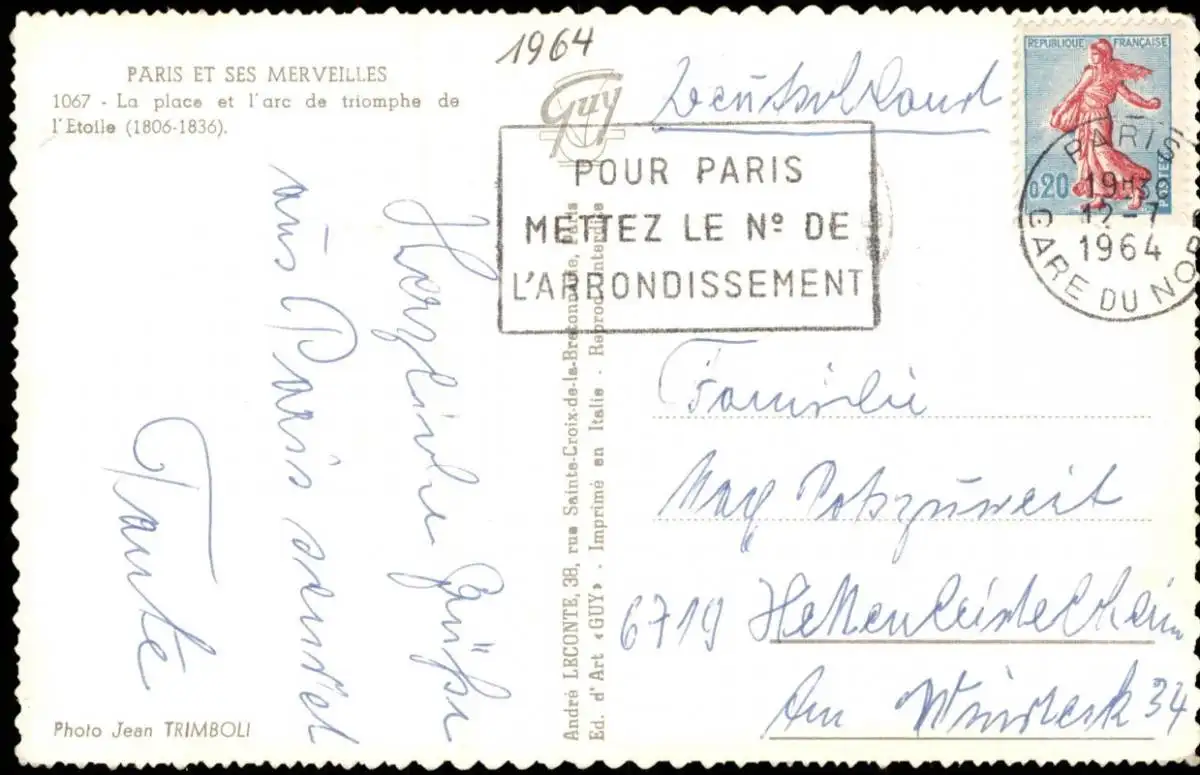 1964
PARIS ET SES MERVEILLES
1067 - La place et l'arc de triomphe de
l'Etoile (1806-1836).
Guy
Deutschland
POUR PARIS
METTEZ LE Nº DE
L'ARRONDISSEMENT
REPUBLIQUE FRANÇAISE
0,20
POSTES
PARIS
19H30
12-7
1964
GARE DU NOR
Herzliche Grüße
aus Paris sendet
Tante
André LECONTE, 38, rue Sainte-Croix-de-la-Bretonnerie, Paris
Ed. d'Art «GUY» · Imprimé en Italie · Reprod. Interdite
Familie
Max Pokzuweit
6719 Hettenleidelheim
Am Winteck 34
Photo Jean TRIMBOLI